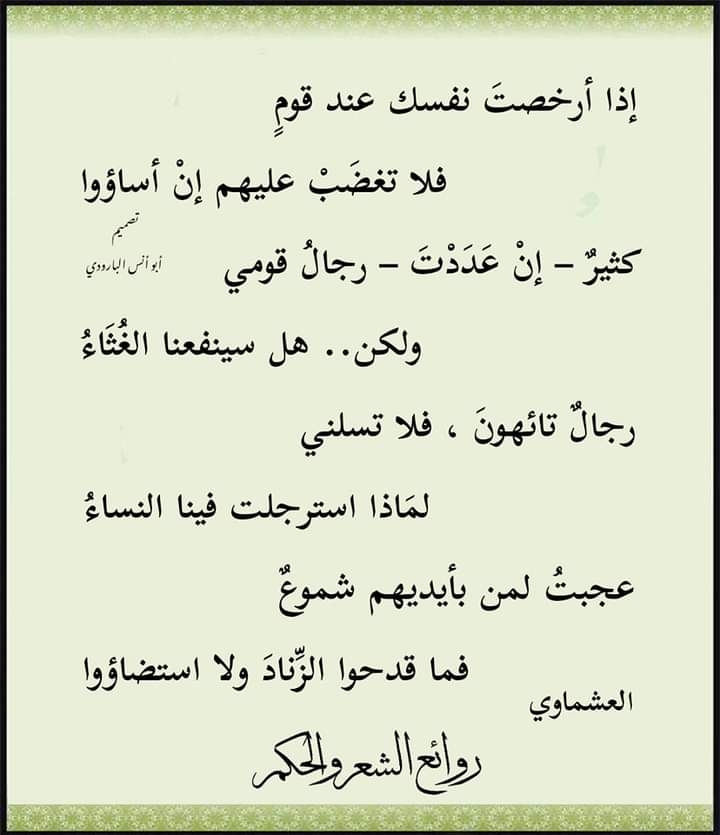 إذا أرخصتَ نفسك عند قومٍ
فلا تغضَبْ عليهم إنْ أساؤوا
تصميم
أبو أنس البارودي
كثيرٌ – إنْ عَدَدْتَ – رجالُ قومي
ولكن.. هل سينفعنا الغُثَاءُ
رجالٌ تائهونَ ، فلا تسلني
لمَاذا استرجلت فينا النساءُ
عجبتُ لمن بأيديهم شموعٌ
فما قدحوا الزِّنادَ ولا استضاؤوا
العشماوي
روائع الشعر والحكم